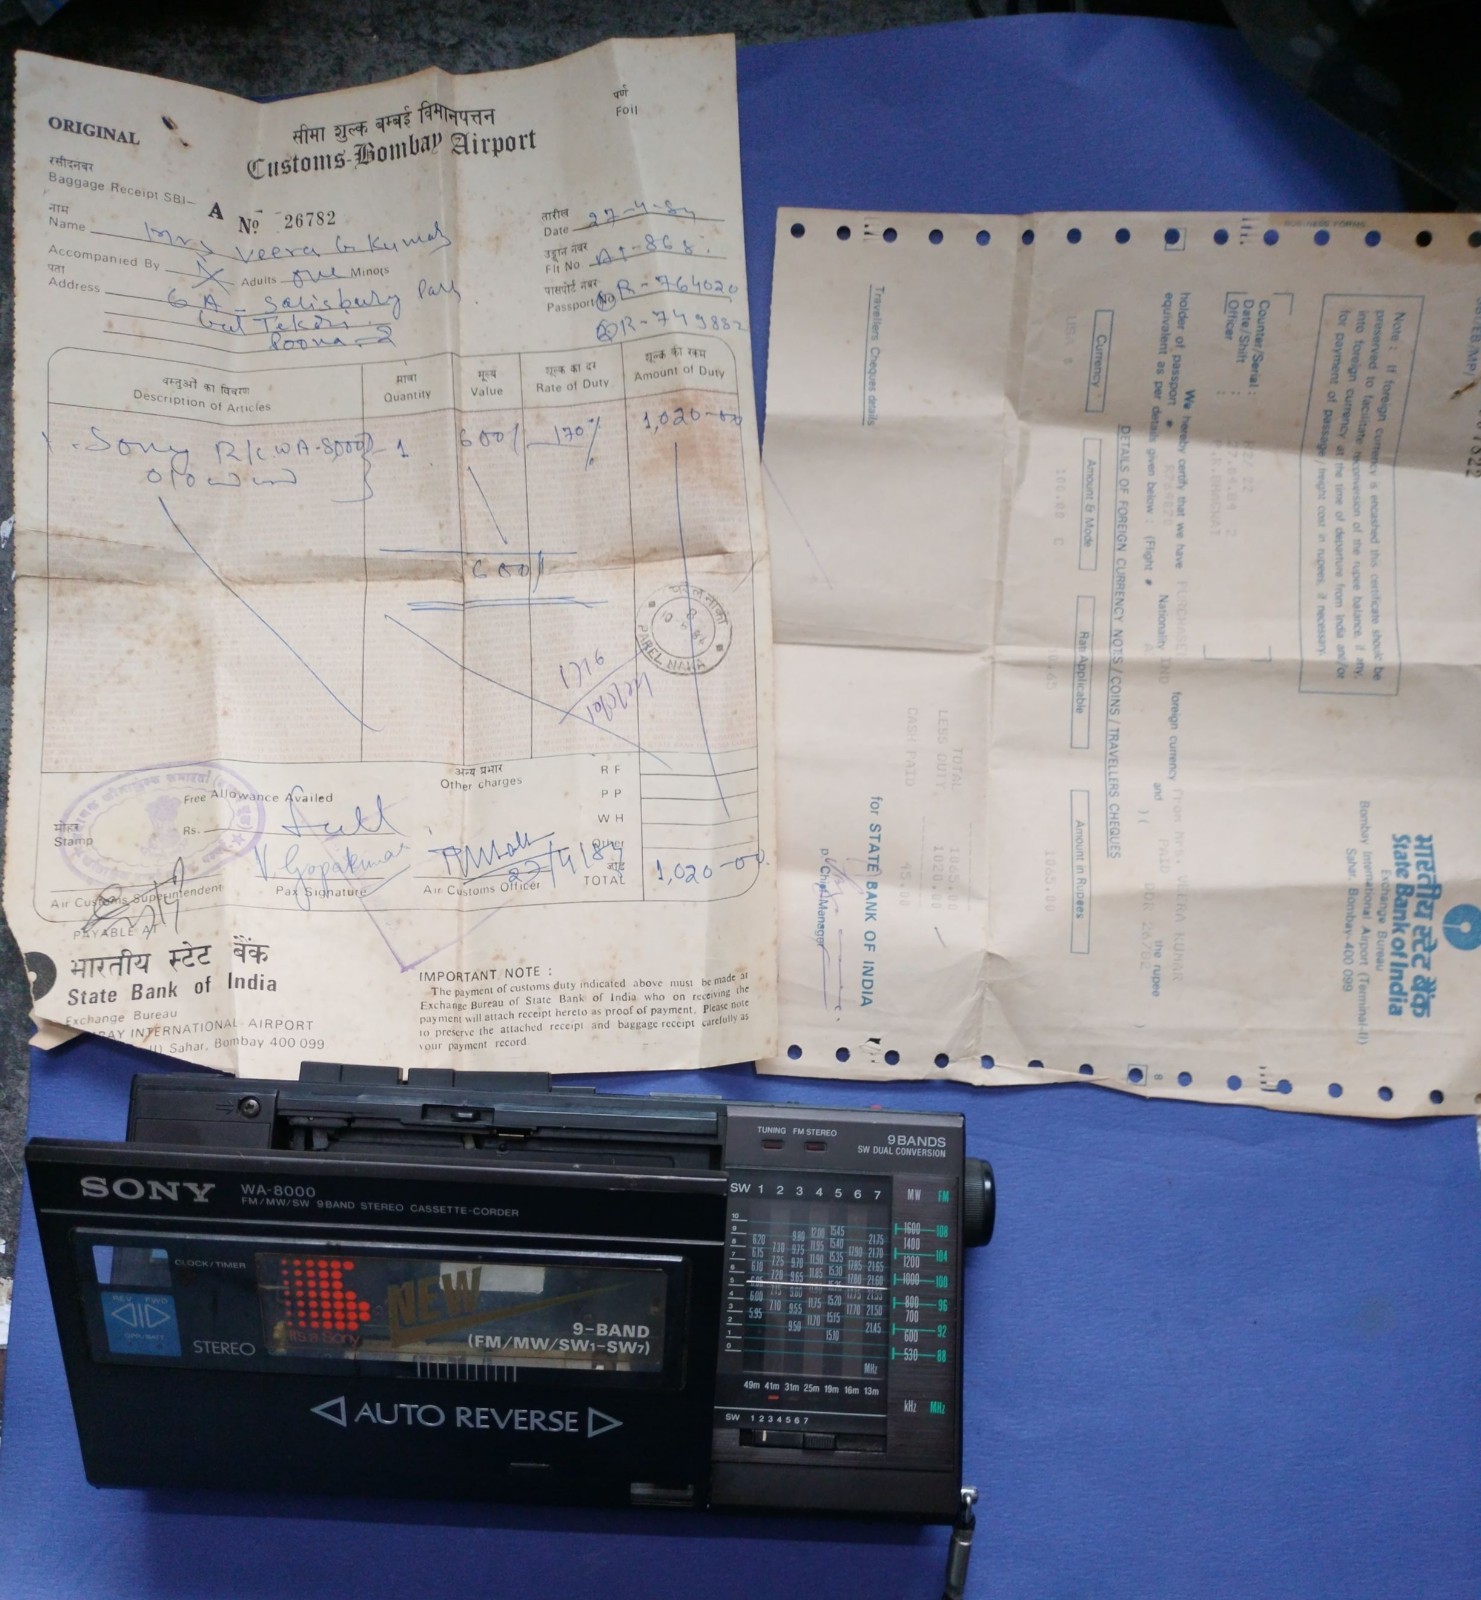 ORIGINAL
सीमा शुल्क बम्बई विमानपत्तन
Customs-Bombay Airport
पर्ण
Foil
रसीद नंबर
Baggage Receipt SBI-
A
No 26782
नाम
Name
Mrs Veera G Kumar
तारीख
Date 27-4-84
Accompanied By
Adults one Minors
उड़ान नंबर
Flt No AI-868
पता
Address
6 A - Salisbury Park
Poona-2
पासपोर्ट नंबर
Passport No R-764020
R-749882
वस्तुओं का विवरण
Description of Articles
मात्रा
Quantity
मूल्य
Value
शुल्क का दर
Rate of Duty
शुल्क की रकम
Amount of Duty
1. Sony R/C WA-8000 1 600/- 170% 1,020-00
600/-
PAREL NAKA
1716
अन्य प्रभार
Other charges
R F
P P
W H
Free Allowance Availed
मोहर
Stamp
Rs. Full
V Gopakumar
Pax Signature
27/4/84
Air Customs Superintendent
Air Customs Officer
TOTAL 1,020-00
PAYABLE AT
भारतीय स्टेट बैंक
State Bank of India
Exchange Bureau
BAY INTERNATIONAL AIRPORT
Sahar, Bombay 400 099
IMPORTANT NOTE :
The payment of customs duty indicated above must be made at
Exchange Bureau of State Bank of India who on receiving the
payment will attach receipt hereto as proof of payment. Please note
to preserve the attached receipt and baggage receipt carefully as
your payment record
भारतीय स्टेट बैंक
State Bank of India
Exchange Bureau
Bombay International Airport (Terminal-II)
Sahar, Bombay-400 099
Note : If foreign currency is encashed this certificate should be
preserved to facilitate reconversion of the rupee balance, if any,
into foreign currency at the time of departure from India and/or
for payment of passage/freight cost in rupees, if necessary.
Counter/Serial :
Date/Shift :
Officer :
We hereby certify that we have PURCHASED foreign currency from Mrs VEERA KUMAR
holder of passport # R764020 Nationality IND and PAID the rupee
equivalent as per details given below : (Flight #
DETAILS OF FOREIGN CURRENCY NOTS/COINS/TRAVELLERS CHEQUES
Currency
Amount & Mode
Rate Applicable
Amount in Rupees
USA $
100.00 C
1065.00
TOTAL 1065.00
LESS DUTY 1020.00
CASH PAID 45.00
for STATE BANK OF INDIA
Dy Chief Manager
Travellers Cheques details
SONY WA-8000
FM/MW/SW 9BAND STEREO CASSETTE-CORDER
CLOCK/TIMER
REV FWD
STEREO
It's a Sony
NEW
9-BAND
(FM/MW/SW1-SW7)
AUTO REVERSE
TUNING FM STEREO
9BANDS
SW DUAL CONVERSION
SW 1 2 3 4 5 6 7 MW FM
10
9
8
7
6
5
4
3
2
1
0
6.20
6.15
6.10
6.00
5.95
7.30
7.25
7.20
7.10
9.80
9.75
9.70
9.65
9.55
9.50
12.00
11.95
11.90
11.85
11.75
11.70
15.45
15.40
15.35
15.30
15.20
15.15
15.10
17.90
17.85
17.80
17.70
21.75
21.70
21.65
21.60
21.50
21.45
1600 108
1400
1200 104
1000 100
800 96
700
600 92
530 88
MHz
49m 41m 31m 25m 19m 16m 13m
kHz MHz
SW 1 2 3 4 5 6 7